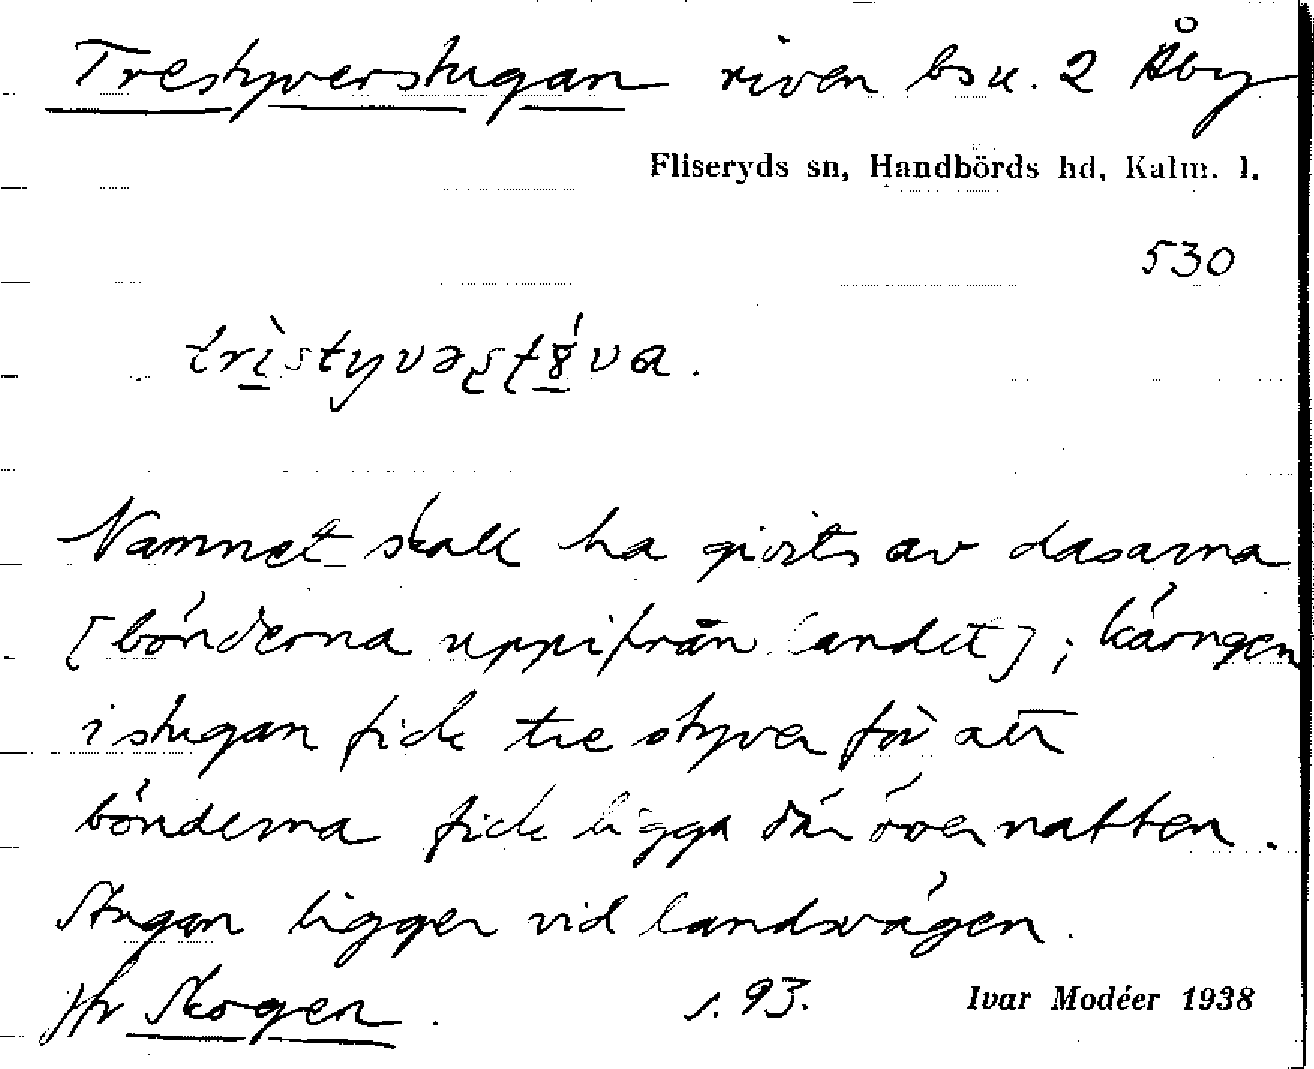 Trestyverstugan riven bs u. 2 Åby
Fliseryds sn, Handbörds hd, Kalm. l.
530
Namnet skall ha givits av dasarna
[bönderna uppifrån landet]; käringen
i stugan fick tre styver för att
bönderna fick ligga där över natten.
Stugan ligger vid landsvägen.
Jfr Skogen. s. 93. Ivar Modéer 1938